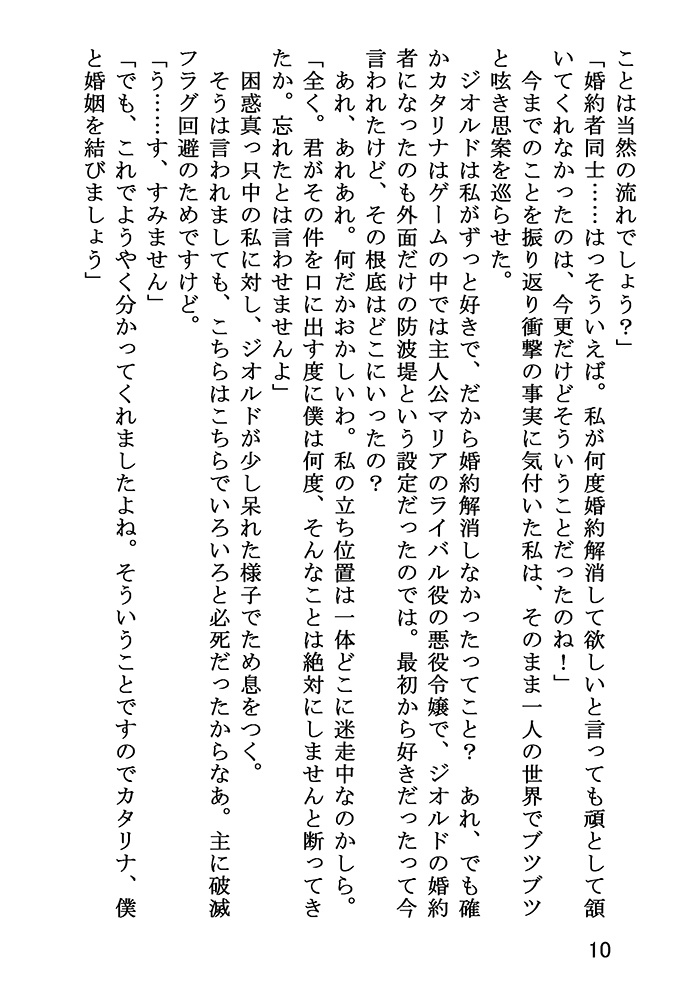 ことは当然の流れでしょう？」
「婚約者同士……はっそういえば。私が何度婚約解消して欲しいと言っても頑として頷
いてくれなかったのは、今更だけどそういうことだったのね！」
　今までのことを振り返り衝撃の事実に気付いた私は、そのまま一人の世界でブツブツ
と呟き思案を巡らせた。
　ジオルドは私がずっと好きで、だから婚約解消しなかったってこと？　あれ、でも確
かカタリナはゲームの中では主人公マリアのライバル役の悪役令嬢で、ジオルドの婚約
者になったのも外面だけの防波堤という設定だったのでは。最初から好きだったって今
言われたけど、その根底はどこにいったの？
　あれ、あれあれ。何だかおかしいわ。私の立ち位置は一体どこに迷走中なのかしら。
「全く。君がその件を口に出す度に僕は何度、そんなことは絶対にしませんと断ってき
たか。忘れたとは言わせませんよ」
　困惑真っ只中の私に対し、ジオルドが少し呆れた様子でため息をつく。
　そうは言われましても、こちらはこちらでいろいろと必死だったからなあ。主に破滅
フラグ回避のためですけど。
「う……す、すみません」
「でも、これでようやく分かってくれましたよね。そういうことですのでカタリナ、僕
と婚姻を結びましょう」
10